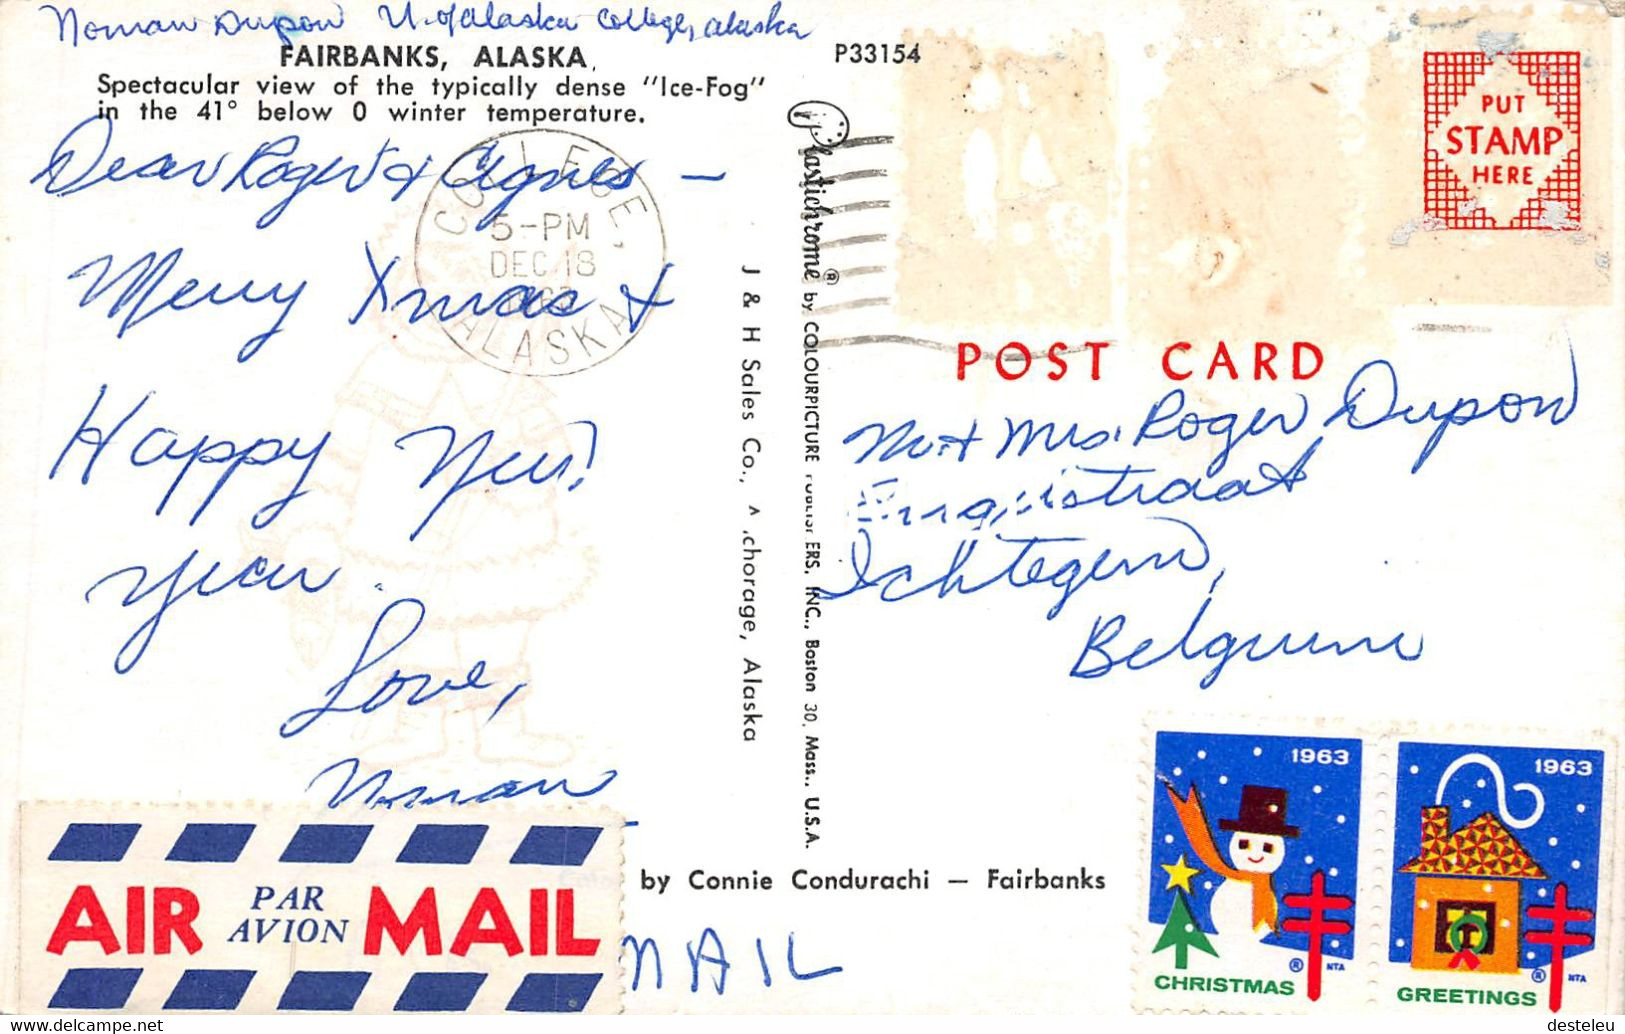 Norman Dupon U. of Alaska College, Alaska
FAIRBANKS, ALASKA
Spectacular view of the typically dense "Ice-Fog"
in the 41° below 0 winter temperature.
P33154
Dear Roger & Agnes —
Merry Xmas &
Happy New
Year.
Love,
Norman
COLLEGE,
5-PM
DEC 18
1963
ALASKA
J & H Sales Co., A chorage, Alaska
Plastichrome® by COLOURPICTURE PUBLISHERS, INC., Boston 30, Mass., U.S.A.
PUT
STAMP
HERE
POST CARD
Mr + Mrs. Roger Dupon
Ichtegem,
Belgium
by Connie Condurachi — Fairbanks
AIR PAR AVION MAIL
MAIL
1963
CHRISTMAS
® NTA
1963
GREETINGS
® NTA
desteleu
www.delcampe.net